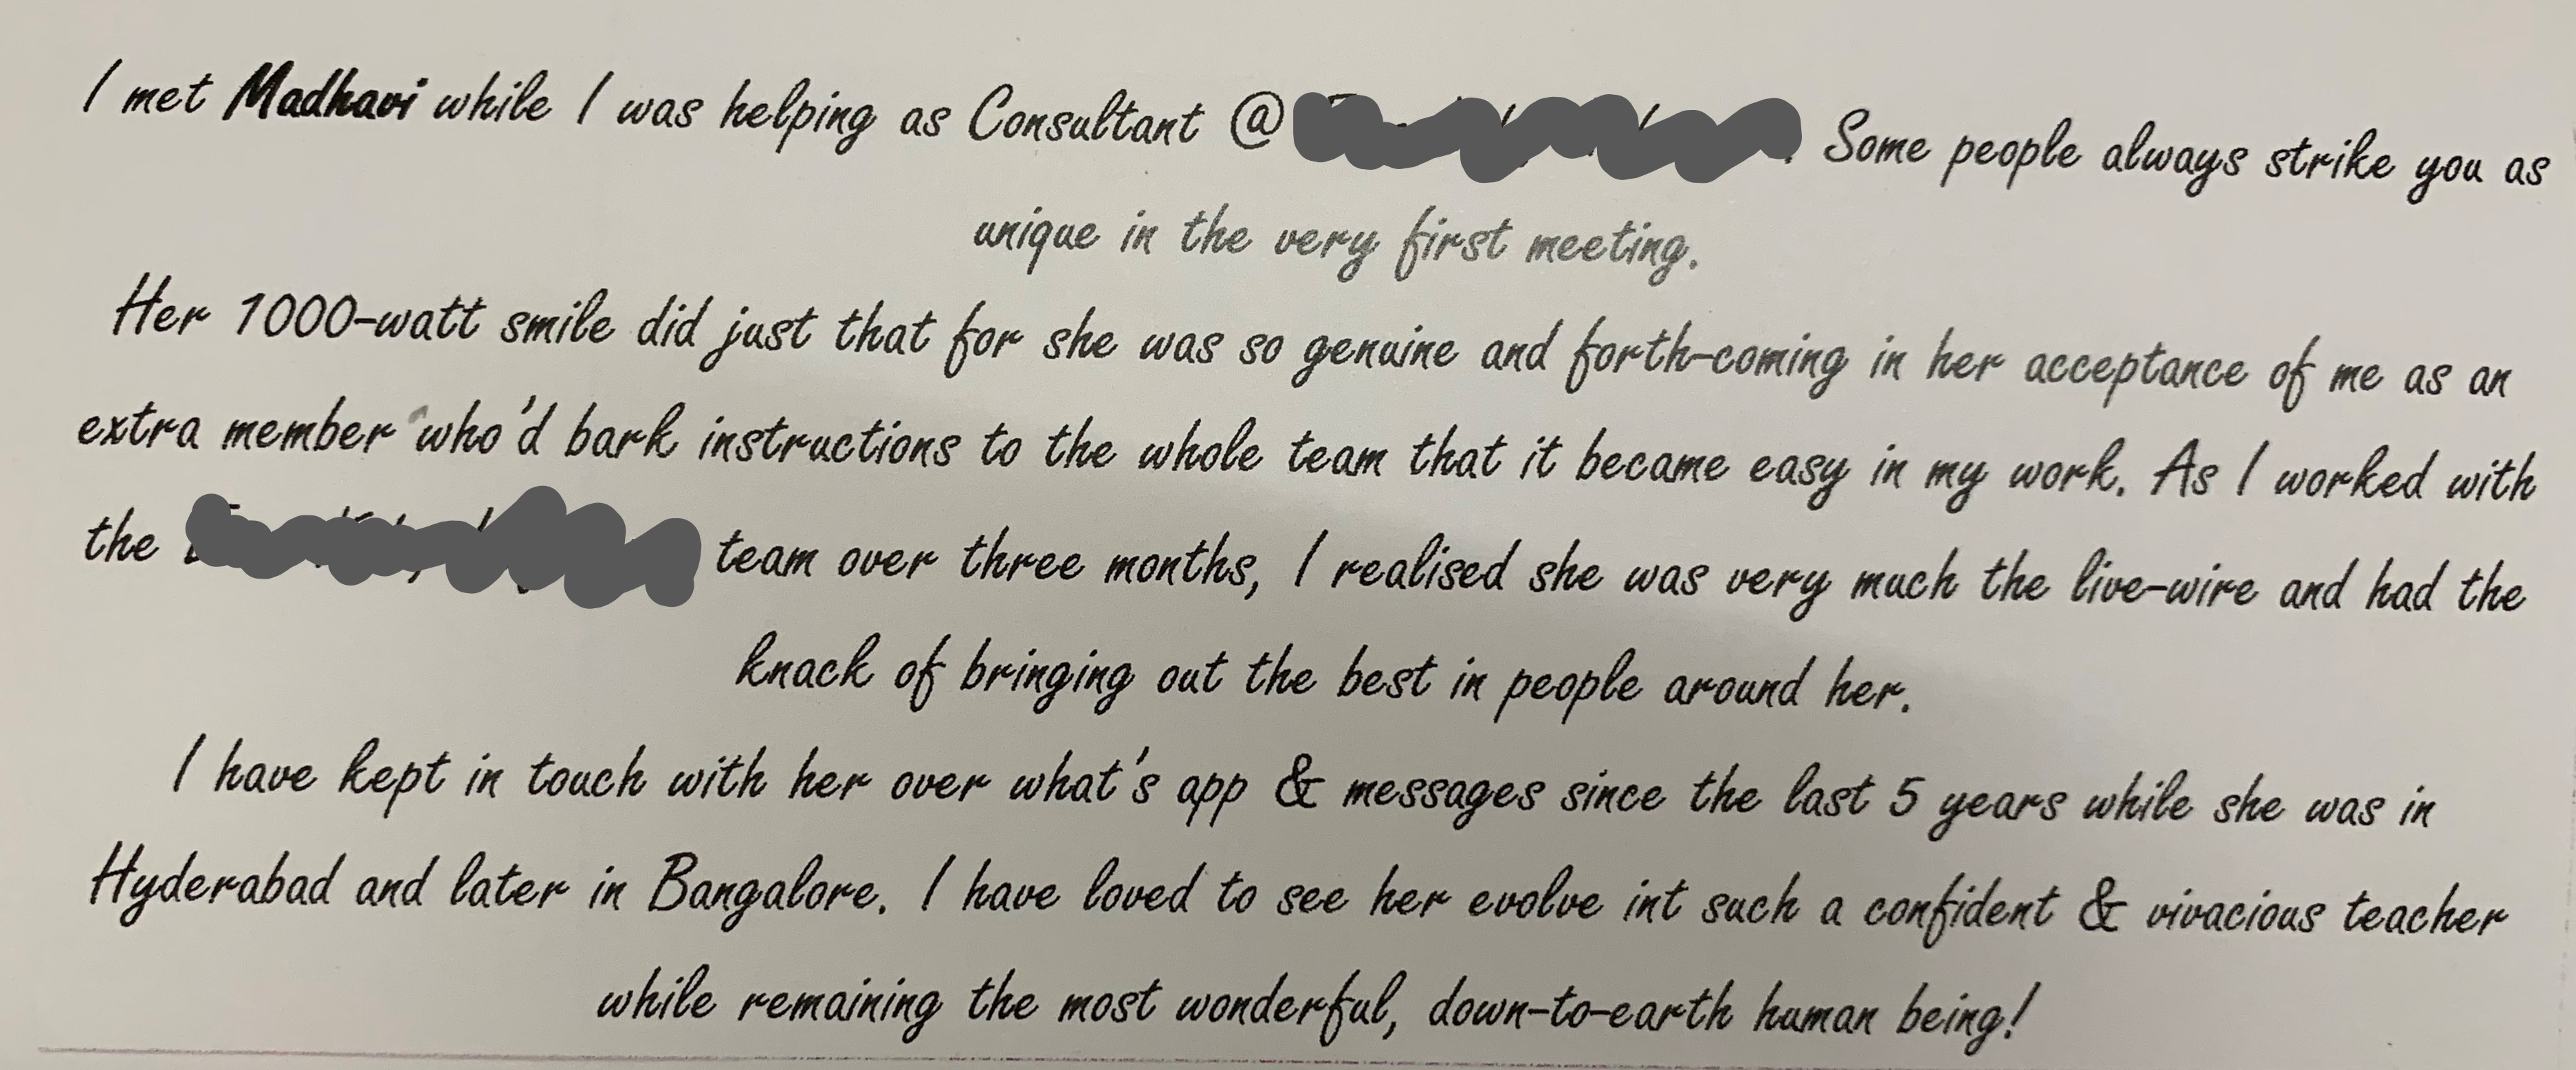 I met Madhavi while I was helping as Consultant @ . Some people always strike you as
unique in the very first meeting.
Her 1000-watt smile did just that for she was so genuine and forth-coming in her acceptance of me as an
extra member who'd bark instructions to the whole team that it became easy in my work. As I worked with
the team over three months, I realised she was very much the live-wire and had the
knack of bringing out the best in people around her.
I have kept in touch with her over what's app & messages since the last 5 years while she was in
Hyderabad and later in Bangalore. I have loved to see her evolve int such a confident & vivacious teacher
while remaining the most wonderful, down-to-earth human being!